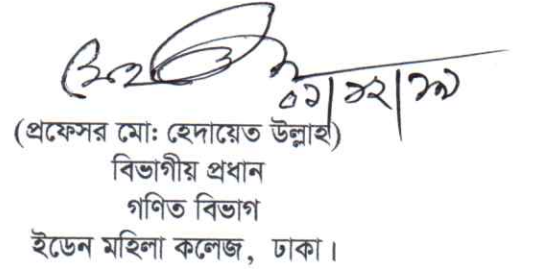 ০১/১২/১৯
(প্রফেসর মো: হেদায়েত উল্লাহ)
বিভাগীয় প্রধান
গণিত বিভাগ
ইডেন মহিলা কলেজ, ঢাকা।